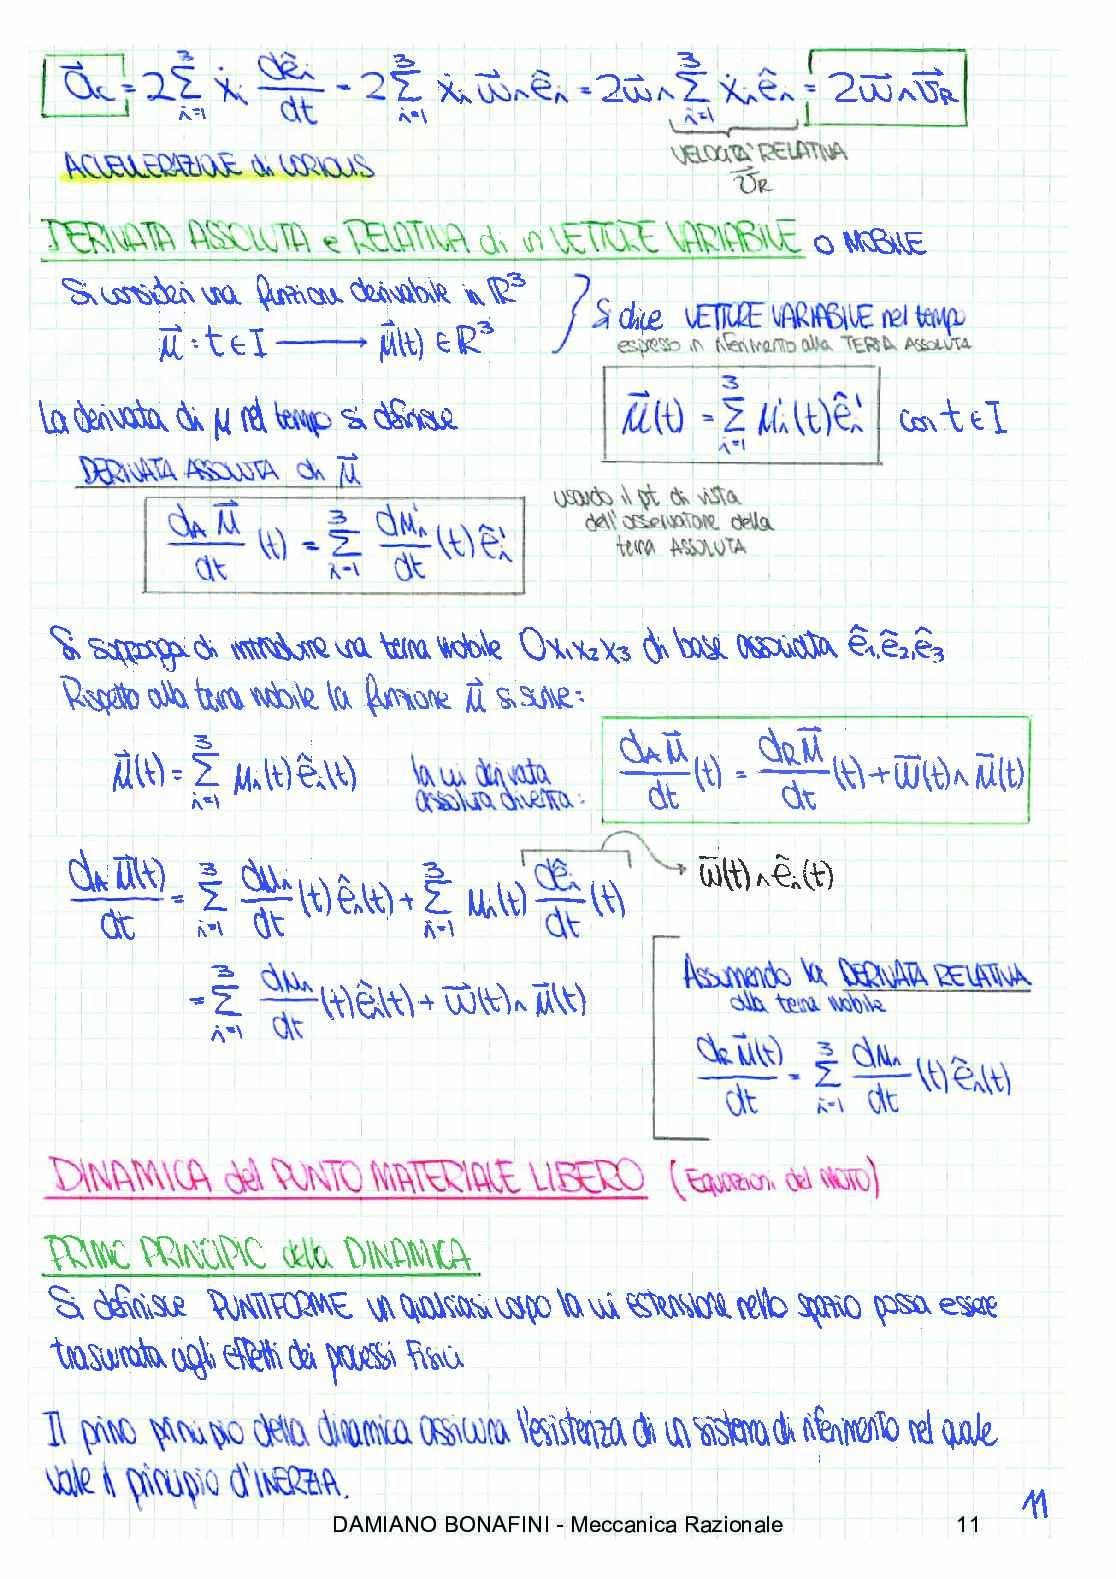 a⃗c = 2 Σ_{i=1}^{3} ẋi dêi/dt = 2 Σ_{i=1}^{3} ẋi ω⃗ ∧ êi = 2ω⃗ ∧ Σ_{i=1}^{3} ẋi êi = 2ω⃗ ∧ v⃗R
VELOCITA' RELATIVA
v⃗R
ACCELLERAZIONE di CORIOLIS
DERIVATA ASSOLUTA e RELATIVA di un VETTORE VARIABILE o MOBILE
Si consideri una funzione derivabile in ℝ³
μ⃗ : t ∈ I ⟶ μ⃗(t) ∈ ℝ³
Si dice VETTORE VARIABILE nel tempo
espresso in riferimento alla TERNA ASSOLUTA
μ⃗(t) = Σ_{i=1}^{3} μ'i(t) ê'i con t ∈ I
La derivata di μ nel tempo si definisce
DERIVATA ASSOLUTA di μ⃗
dA μ⃗/dt (t) = Σ_{i=1}^{3} dμ'i/dt (t) ê'i
usando il pt di vista
dell'osservatore della
terna ASSOLUTA
Si supponga di introdurre una terna mobile Ox1x2x3 di base associata ê1,ê2,ê3
Rispetto alla terna mobile la funzione μ⃗ si scrive:
μ⃗(t) = Σ_{i=1}^{3} μi(t) êi(t)
la cui derivata
assoluta diventa:
dA μ⃗/dt (t) = dR μ⃗/dt (t) + ω⃗(t) ∧ μ⃗(t)
dA μ⃗(t)/dt = Σ_{i=1}^{3} dμi/dt (t) êi(t) + Σ_{i=1}^{3} μi(t) dêi/dt (t)
ω⃗(t) ∧ êi(t)
= Σ_{i=1}^{3} dμi/dt (t) êi(t) + ω⃗(t) ∧ μ⃗(t)
Assumendo la DERIVATA RELATIVA
alla terna mobile
dR μ⃗(t)/dt = Σ_{i=1}^{3} dμi/dt (t) êi(t)
DINAMICA del PUNTO MATERIALE LIBERO (Equazioni del MOTO)
PRIMO PRINCIPIO della DINAMICA
Si definisce PUNTIFORME un qualsiasi corpo la cui ESTENSIONE nello spazio possa essere
trascurata agli effetti dei processi Fisici
Il primo principio della dinamica assicura l'esistenza di un sistema di riferimento nel quale
vale il principio d'INERZIA.
11
DAMIANO BONAFINI - Meccanica Razionale 11